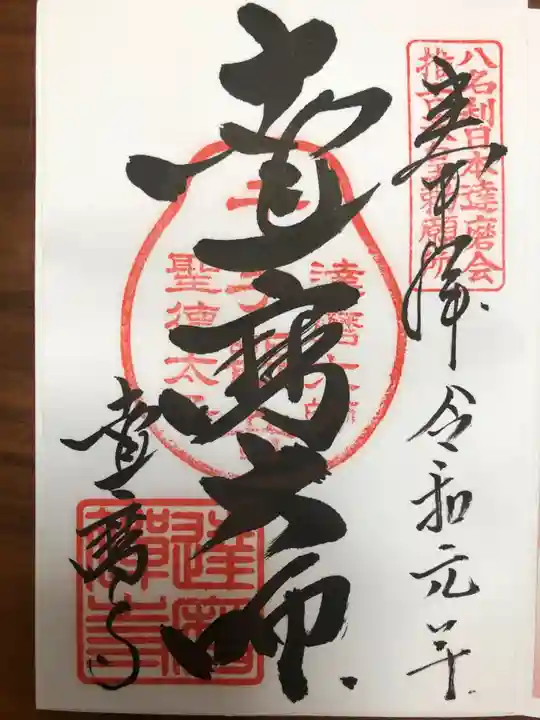 八名刹日本達磨会
奉拝 令和元年
達磨大師
達磨大師
聖徳太子
達磨寺
達磨寺